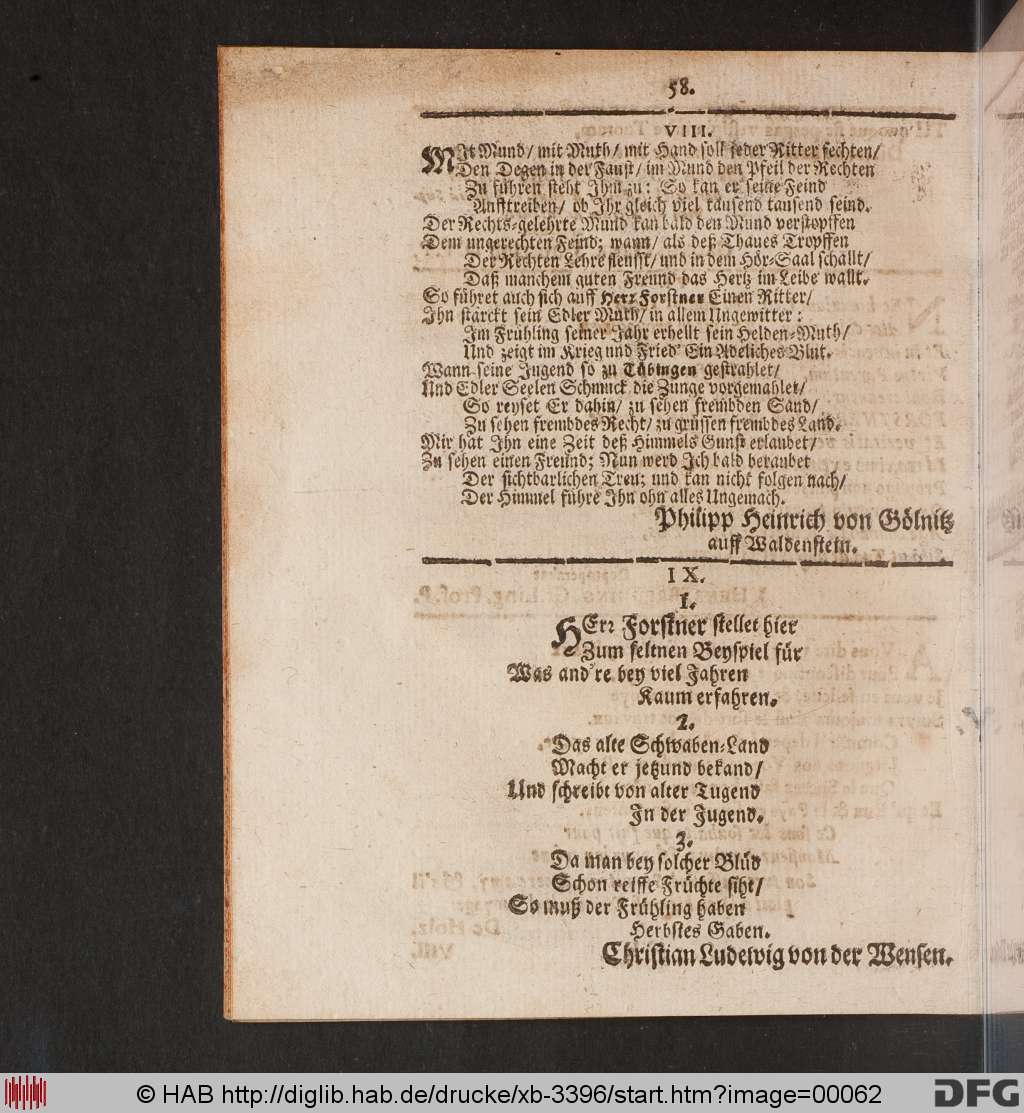 58.
VIII.
MIt Mund/ mit Muth/ mit Hand soll jeder Ritter fechten/
Den Degen in der Faust/ im Mund den Pfeil der Rechten
Zu führen steht Ihm zu: So kan er seine Feind
Aufftreiben/ ob Ihr gleich viel tausend tausend seind.
Der Rechts-gelehrte Mund kan bald den Mund verstopffen
Dem ungerechten Feind; wann/ als deß Thaues Tropffen
Der Rechten Lehre fleusst/ und in dem Hör-Saal schallt/
Daß manchem guten Freund das Hertz im Leibe wallt.
So führet auch sich auff Herr Forstner Einen Ritter/
Ihn stärckt sein Edler Muth/ in allem Ungewitter:
Im Frühling seiner Jahr erhellt sein Helden-Muth/
Und zeigt im Krieg und Fried' Ein Adeliches Blut.
Wann seine Jugend so zu Tübingen gestrahlet/
Und Edler Seelen Schmuck die Zunge vorgemahlet/
So reyset Er dahin/ zu sehen frembden Sand/
Zu sehen frembdes Recht/ zu grüssen frembdes Land.
Mir hat Ihn eine Zeit deß Himmels Gunst erlaubet/
Zu sehen einen Freund; Nun werd Ich bald beraubet
Der sichtbarlichen Treu; und kan nicht folgen nach/
Der Himmel führe Ihn ohn alles Ungemach.
Philipp Heinrich von Gölnitz
auff Waldenstein.
IX.
1.
HErr Forstner stellet hier
Zum seltnen Beyspiel für
Was and're bey viel Jahren
Kaum erfahren.
2.
Das alte Schwaben-Land
Macht er jetzund bekand/
Und schreibt von alter Tugend
In der Jugend.
3.
Da man bey solcher Blüd
Schon reiffe Früchte siht/
So muß der Frühling haben
Herbstes Gaben.
Christian Ludewig von der Wensen.
© HAB http://diglib.hab.de/drucke/xb-3396/start.htm?image=00062
DFG